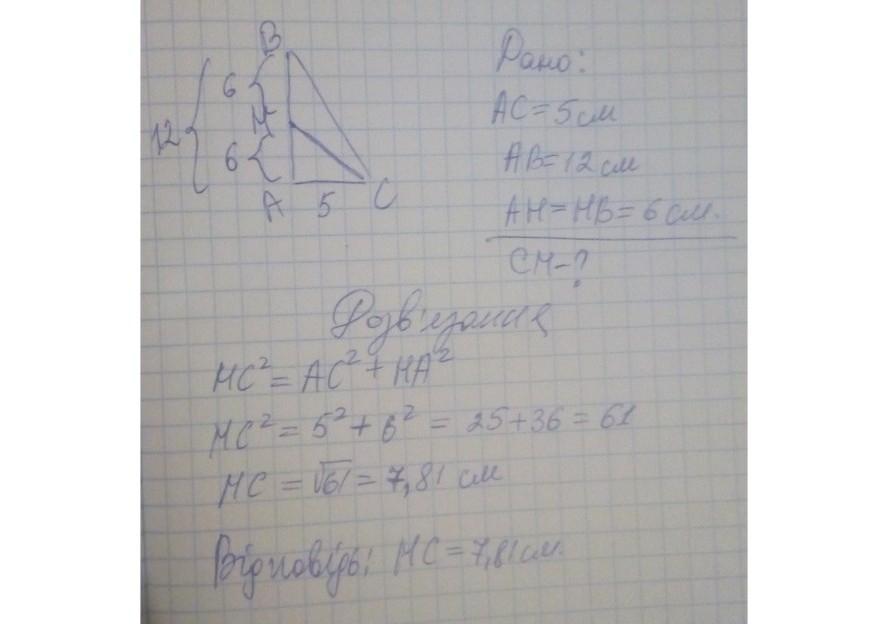 B
6
12
M
6
A 5 C
Дано:
AC = 5 см
AB = 12 см
AM = MB = 6 см.
CM - ?
Розв'язання
MC² = AC² + MA²
MC² = 5² + 6² = 25 + 36 = 61
MC = √61 = 7,81 см
Відповідь: MC = 7,81 см.